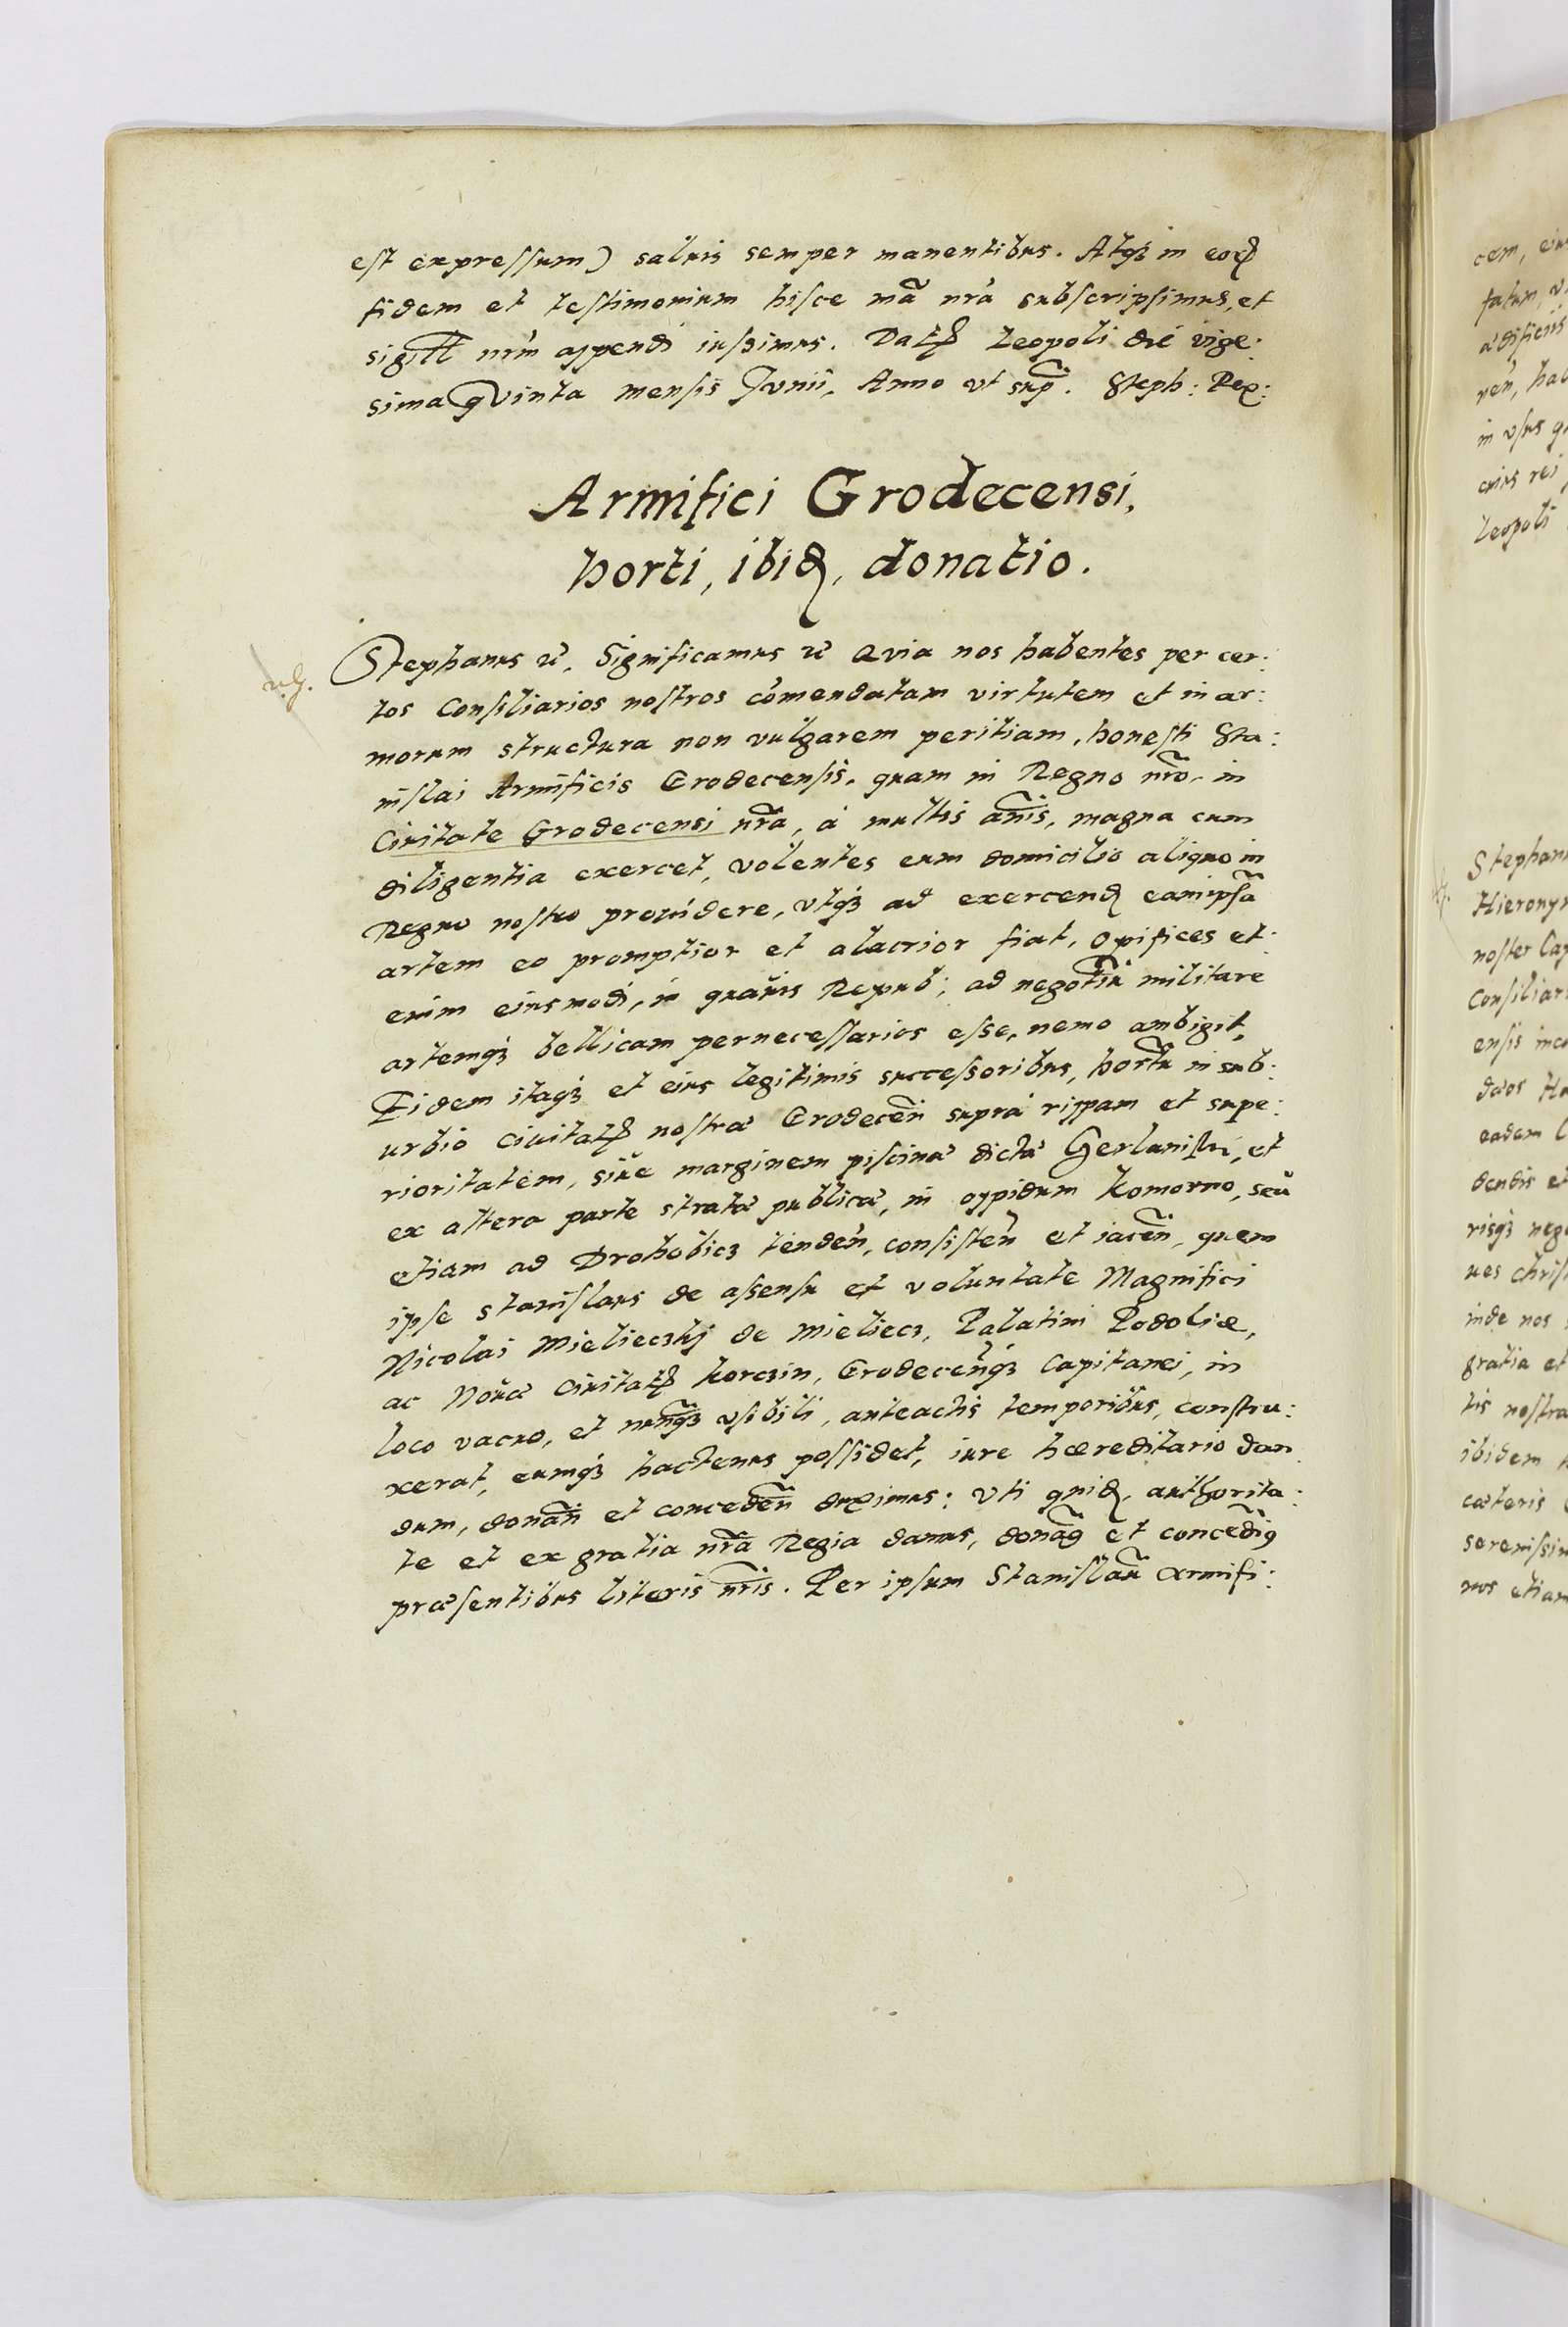 est expressum) saluis semper manentibus. Atq₃ in eorꝝ
fidem et testimonium hisce mã nrã subscripsimus, et
sigill nr̃m appendi iussimus. Datꝭ Leopoli die vige:
sima qvinta mensis Jvnii, Anno vt supr̃. Steph: Rex:
Armifici Grodecensi,
horti, ibiđ, donatio.
Stephanus &c. Significamus &c Qvia nos habentes per cer:
tos Consiliarios nostros cõmendatam virtutem et in ar:
morum structura non vulgarem peritiam, honesti Sta:
nislai Armificis Grodecensis, quam in Regno nr̃o, in
Ciuitate Grodecensi nr̃a, á multis añis, magna cum
diligentia exercet, volentes eum domicilio aliquo in
Regno nostro prouidere, vtq₃ ad exercenđ eamipsã
artem eo promptior et alacrior fiat, Opifices et:
enim eiusmodi, in quauis Repub: ad negotiũ militare
artemq₃ bellicam pernecessarios esse, nemo ambigit,
Eidem itaq₃ et eius legitimis successoribus, hortũ in sub:
urbio Ciuitatꝭ nostræ Grodeceñ supra rippam et supe:
rioritatem, siue marginem piscinæ dictæ Herlaniski, et
ex altera parte stratæ publicæ, in oppidum Komorno, seu
etiam ad Drohobicz tendeñ, consisteñ et iaceñ, quem
ipse Stanislaus de assensu et voluntate Magnifici
Nicolai Mielieczkj de Mieliecz, Palatini Podoliæ,
ac Nouæ Ciuitatꝭ Korczin, Grodeceñq₃ Capitanei, in
loco vacuo, et nunq̃₃ vsibili, anteactis temporibus, constru:
xerat, eumq₃ hactenus possidet, iure hæreditario dan
dum, donañ et concedeñ duximus: Vti quiđ, authorita:
te et ex gratia nr̃a Regia damus, donam̃9 et concedim̃9
præsentibus literis nr̃is. Per ipsum Stanislaũ Armifi: